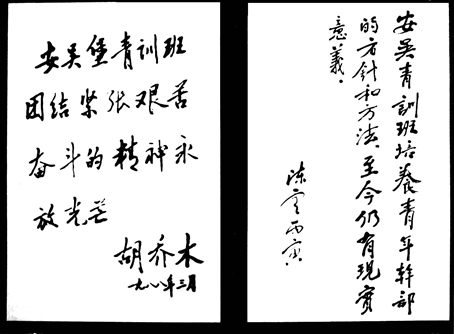 安吴堡青训班
团结紧张艰苦
奋斗的精神永
放光芒
胡乔木
一九八六年三月
安吴青訓班培養青年幹部
的方針和方法、至今仍有現實
意義。
陈云丙寅